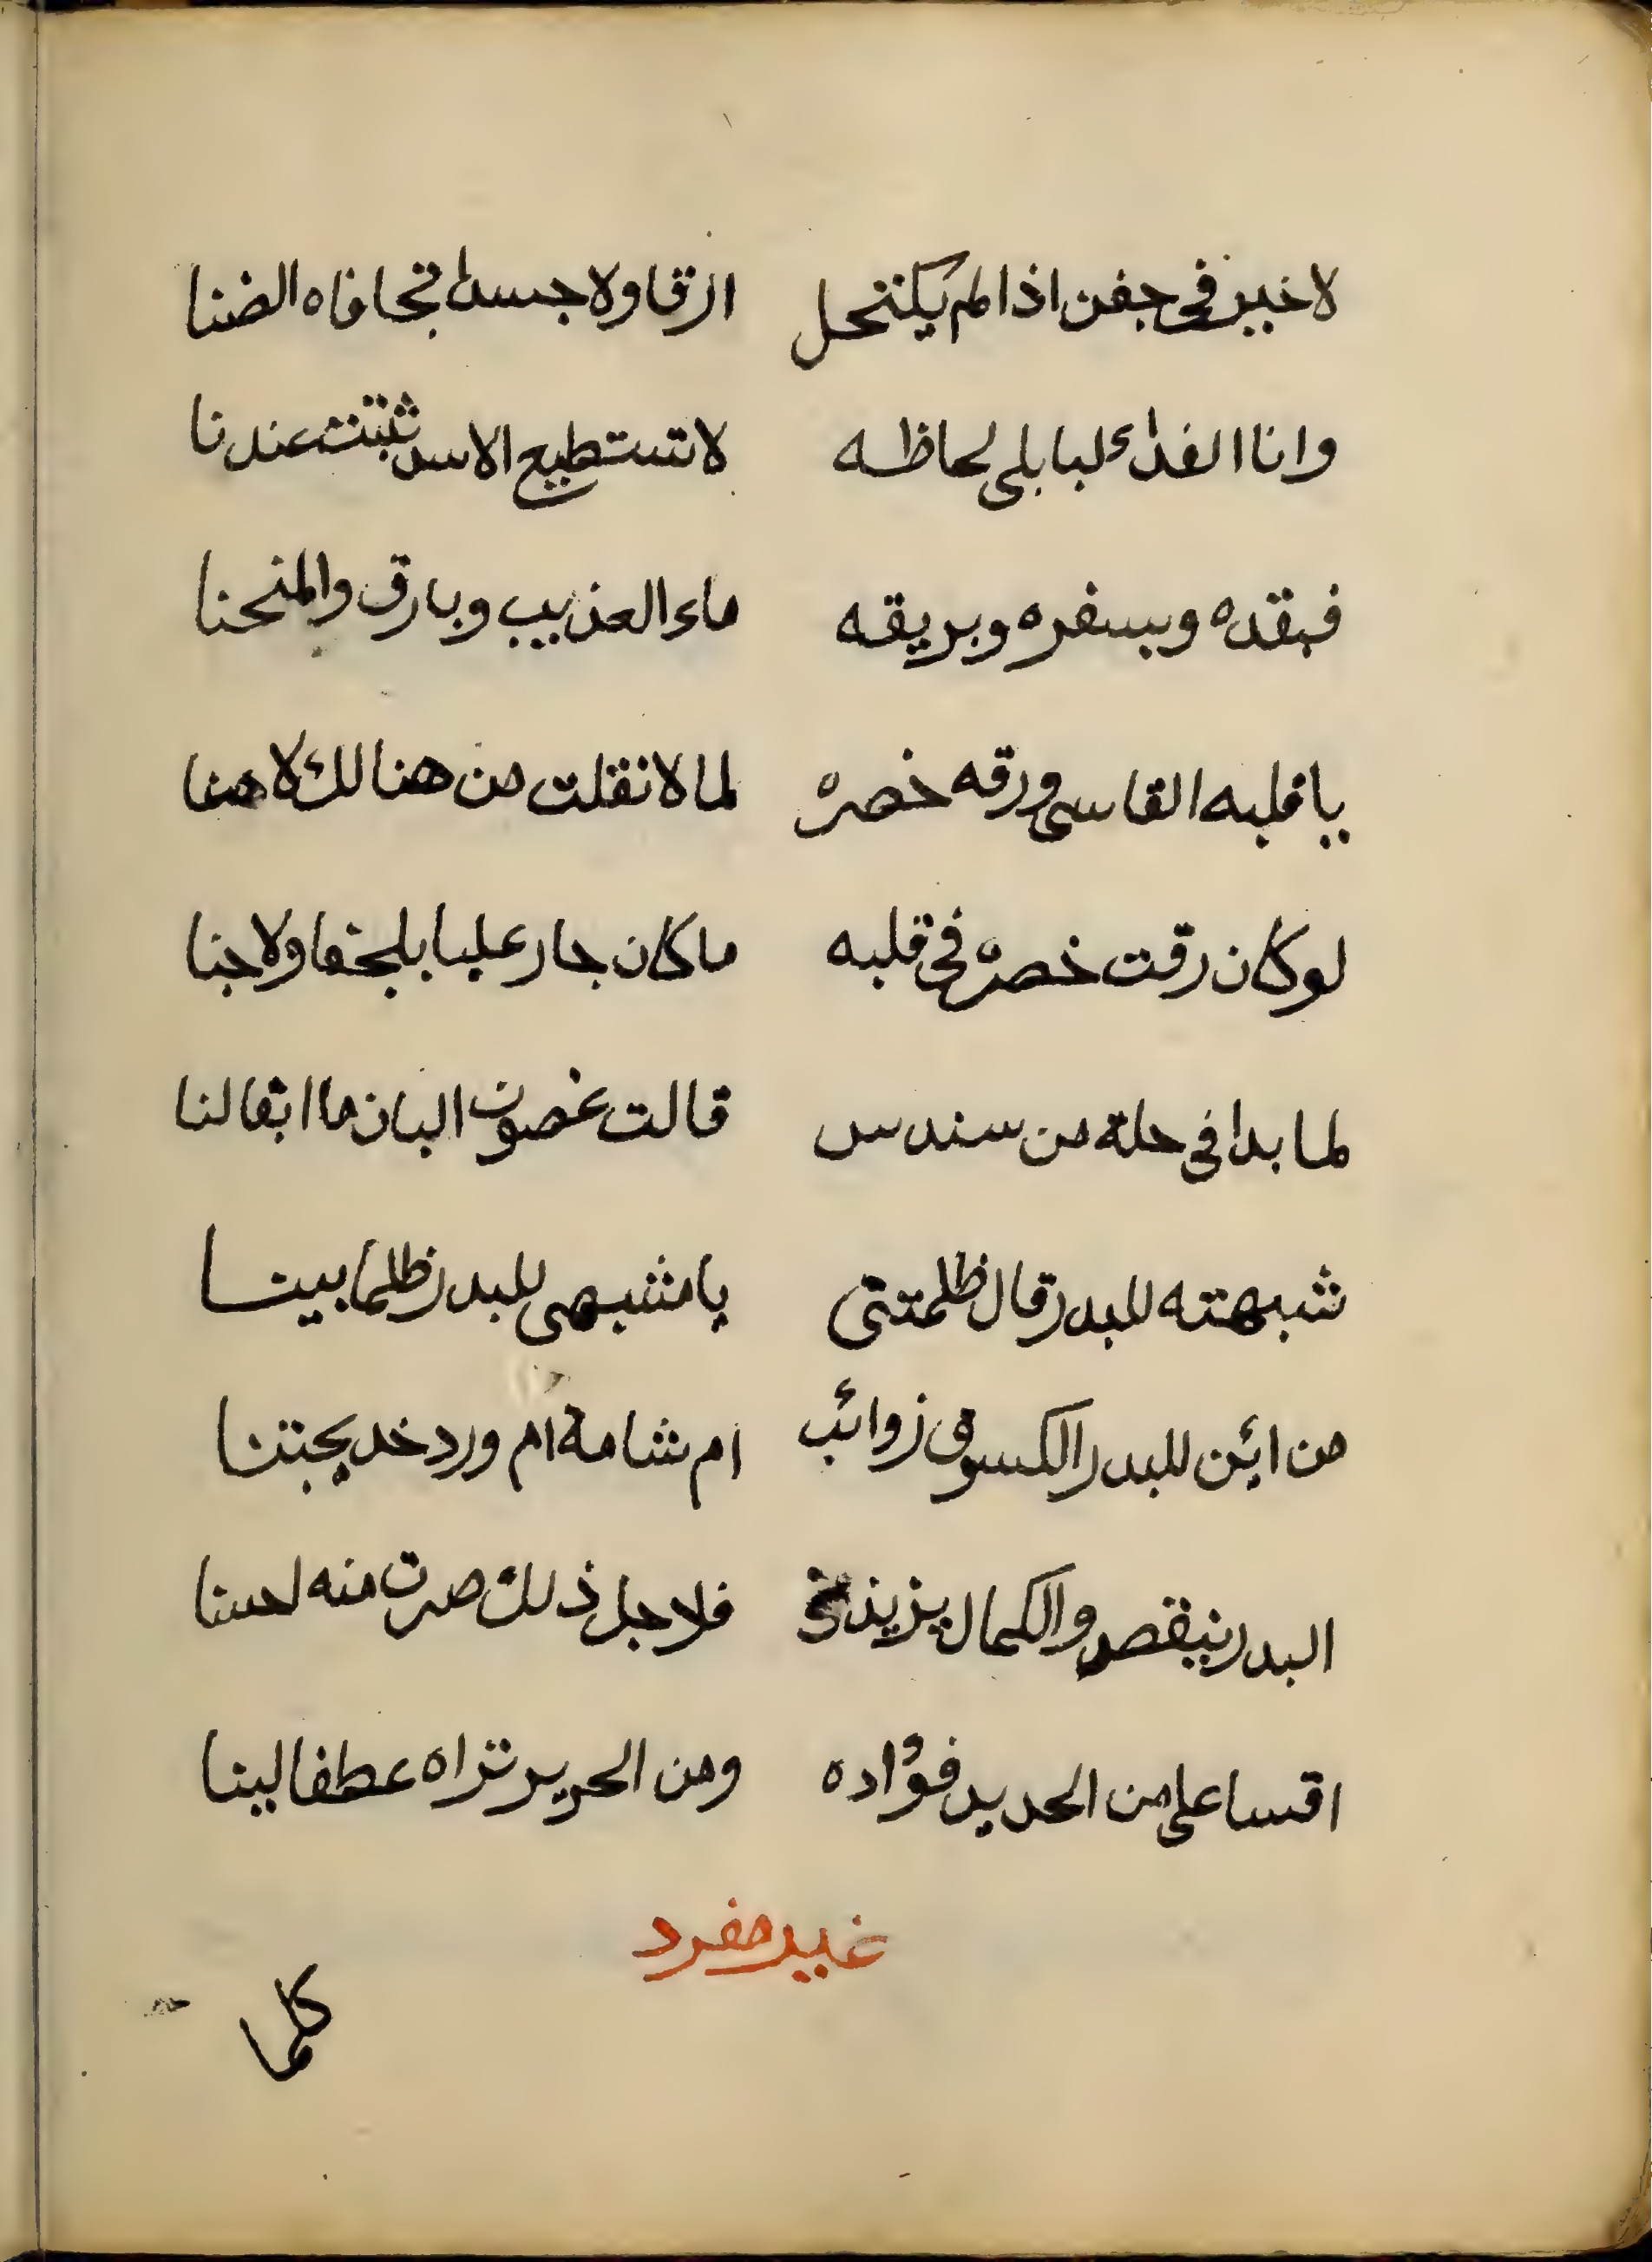 لا خير في جفن اذا لم يكتحل ارقا ولا جسدا تجافاه الضنا
وانا الفداء لبابلى لحاظه لا تستطيع الاسد تثبت عندنا
فبقده وبسفره وبريقه ماء العذيب وبارق والمنحنا
يا قلبه القاسى ورقه خصره لما لا نقلت من هنالك لا هنا
لو كان رقت خصره في قلبه ما كان جار عليا بلجفا ولا جنا
لما بدا في حلة من سندس قالت غصون البان ما ابقا لنا
شبهته للبدر قال ظلمتنى يا مشبهى للبدر ظلما بينا
من ائين للبدر الكسوفى زوائب ام شامة ام ورد خد يجتنا
البدر ينقص والكمال يزيد فلاجل ذلك صرت منه احسنا
اقسا على من الحديد فؤاده ومن الحرير تراه عطفا لينا
غيره مفرد
كلما